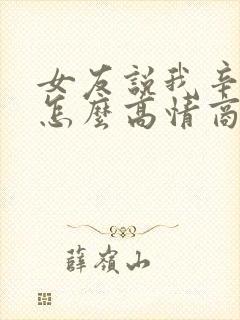 女友説我辛
怎麼高情商
薛嶺山